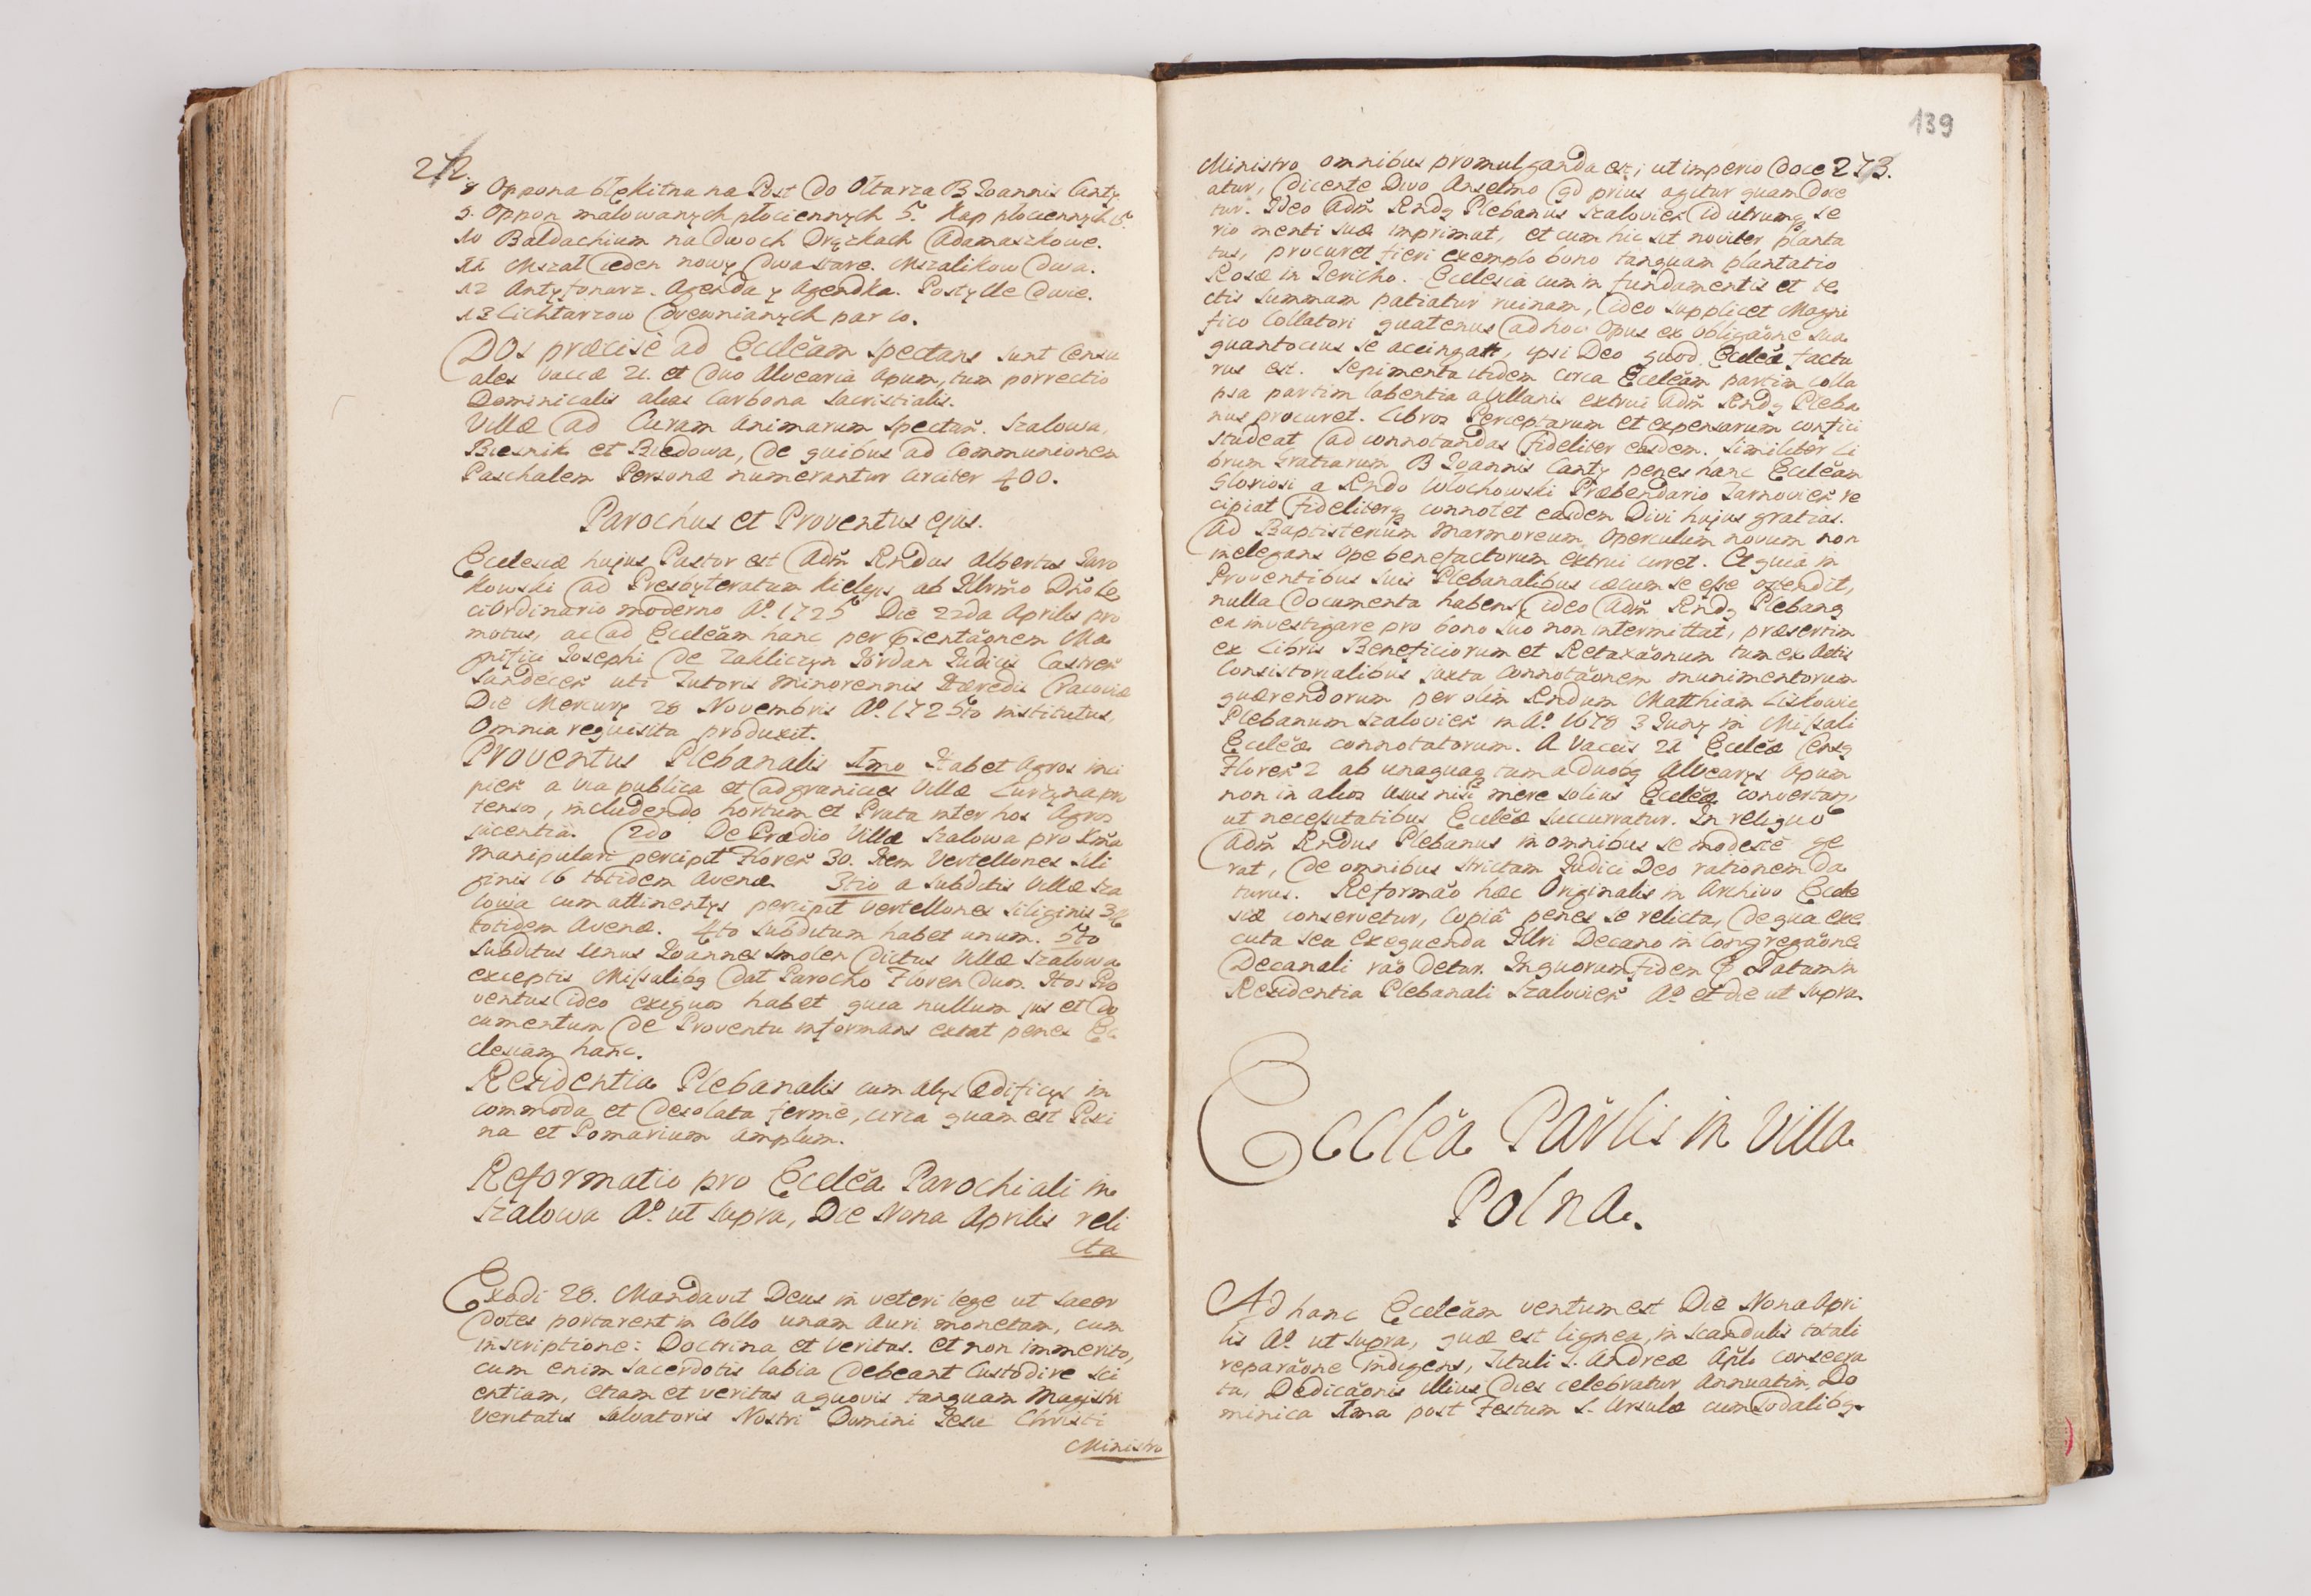 272.
8 Oppona błękitna na Post do Ołtarza B Joannis Canty.
9. Oppon malowanych płociennych 5. Kap płociennych 5.
10 Baldachium na dwoch Drązkach Adamaszkowe.
11 Mszał ieden nowy dwa stare. Mszalikow dwa.
12 Antyfonarz. Agenda y Agendka. Postylle dwie.
13 Lichtarzow drewnianych par 10.
DOs præcisè ad Ecclĕam spectans sunt Censu
ales Vaccæ 21. et duo Alvearia Apum, tum porrectio
Dominicalis alias Carbona Sacristialis.
Villæ ad Curam Animarum Spectañ. Szalowa,
Biesnik et Biedowa, de quibus ad Communionem
Paschalem Personæ numerantur circiter 400.
Parochus et Proventus ejus.
Ecclesiæ hujus Pastor est Adm̃ Rñdus Albertus Jaro
kowski ad Presbyteratum Kielcys ab Illrm̃o Dño Lo
ci Ordinario moderno Aº. 1725 Die 22da Aprilis pro
motus, ac ad Ecclĕam hanc per p̃sentãonem Ma
gnifici Josephi de Zakliczyn Jordan Judicis Castreñ
Sandeceñ uti Tutoris Minorennis Hæredis Cracoviæ
Die Mercury 28 Novembris Aº. 1725to institutus,
Omnia requisita produxit.
PROVENTUS Plebanalis Imo Habet Agros inci
pieñ a via publica et ad granicies Villæ Luczyna pro
tensos, includendo hortum et Prata inter hos Agros
jacentia. 2do De Prædio Villæ Szalowa pro Xma
Manipulari percipit Floreñ 30. Item Vertellones Sili
ginis 16 totidem Avenæ. 3tio a subditis Villæ Sza
lowa cum attinentys percipit Vertellones Siliginis 3
totidem Avenæ. 4to Subditum habet unum. 5to
Subditus Unus Joannes Smolen Dictus Villæ Szalowa
exceptis Missalibq dat Parocho Floren duos. Hos Pro
ventus ideo exiguos habet quia nullum jus et Do
cumentum de Proventu informans extat penes Ec
clesiam hanc.
Residentia Plebanalis cum alys Ædificys in
commoda et desolata fermè, circa quam est Pisci
na et Pomarium amplum.
Reformatio pro Ecclĕa Parochiali in
Szalowa Aº. ut supra, Die Nona Aprilis reli
cta
Exodi 28. Mandavit Deus in veteri lege ut Sacer
dotes portarent in Collo unam Auri monetam, cum
inscriptione: Doctrina et Veritas. et non immerito,
cum enim Sacerdotis labia debeant Custodire Sci
entiam, etiam et veritas a quovis tanquam Magistri
Veritatis Salvatoris Nostri Domini Jesu Christi
Ministro
139
273.
Ministro omnibus promulganda est; ut imperio doce
atur, dicente Divo Anselmo qd prius agitur quam doce
tur. Ideo Adm̃ Rndq Plebanus Szalovieñ id utrumq se
rio menti suæ imprimat, et cum hic sit noviter planta
tus, procuret fieri exemplo bono tanquam plantatio
Rosæ in Jericho. Ecclesia cum in fundamentis et te
ctis Summam patiatur ruinam, ideo Supplicet Magni
fico Collatori quatenus ad hoc Opus ex obligãone sua
quantocius se accingatt, ipsi Deo quod Ecclĕæ factu
rus est. Sepimenta itidem circa Ecclĕam partim colla
psa partim labentia a Villanis extrui Adm̃ Rndq Pleba
nus procuret. Libros Perceptarum et expensarum confici
studeat ad connotandas fideliter easdem. Similiter Li
brum Gratiarum B Joannis Canty penes hanc Ecclĕam
Gloriosi a Rndo Włochowski Præbendario Tarnovieñ re
cipiat fideliterq connotet easdem Divi hujus gratias.
Ad Baptisterium Marmoreum Operculum novum non
inelegans Ope benefactorum extrui curet. Et quia in
Proventibus suis Plebanalibus cæcum se esse ostendit,
nulla documenta habens, ideo Adm̃ Rndq Plebanq
ea investigare pro bono suo non intermittat, præsertim
ex Libris Beneficiorum et Retaxãonum tum ex Actis
Consistorialibus juxta Connotãonem munimentorum
quærendorum per olim Rndum Matthiam Liskowic
Plebanum Szalovieñ in Aº. 1678 3 Juny in Missali
Ecclĕæ connotatorum. A Vaccis 21 Ecclĕæ Censq
Floreñ 2 ab unaquaq tum a duobq Alvearys Apum
non in alios usus nisi mere solius Ecclĕæ convertanr,
ut necessitatibus Ecclĕæ succurratur. In reliquo
Adm̃ Rndus Plebanus in omnibus se modestè ge
rat, de omnibus strictam Judici Deo rationem da
turus. Reformãõ hæc Originalis in Archivo Eccle
siæ conservetur, Copiâ penes se relicta, de qua exe
cuta seu exequenda Illri Decano in Congregãone
Decanali rãõ detur. In quorum fidem p̃ Datum in
Residentia Plebanali Szalovieñ Aº. et die ut supra.
Ecclĕa Par̃lis in Villa
Polna.
Ad hanc Ecclĕam ventum est Die Nona Apri
lis Aº. ut supra, quæ est lignea, in scandulis totali
reparãone indigens, Tituli S. Andreæ Apli consecra
ta, Dedicãonis illius dies celebratur Annuatim, Do
minica Ima post Festum S. Ursulæ cum Sodalibq